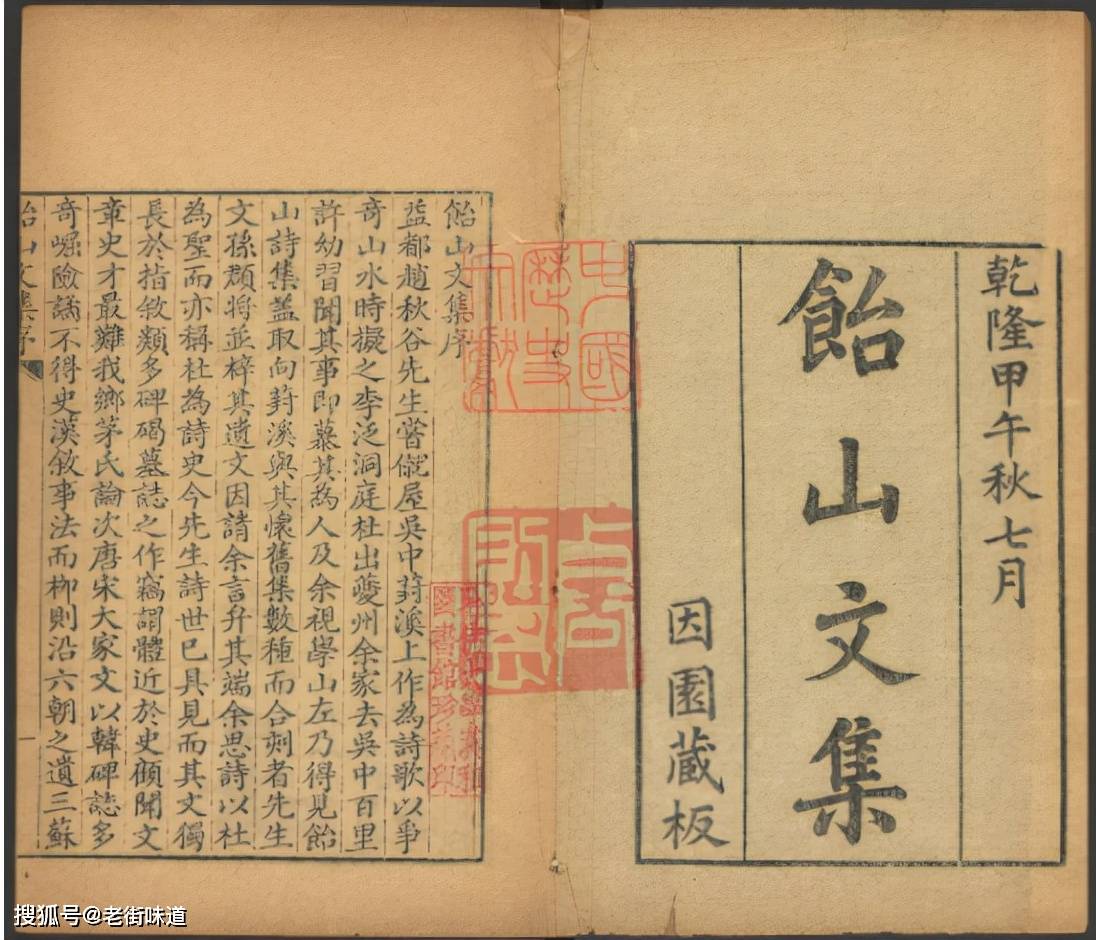 乾隆甲午秋七月
飴山文集
因園藏板
飴山文集序
益都趙秋谷先生嘗僦屋吳中葑溪上作為詩歌以事
奇山水時擬之李泛洞庭杜出夔州余家去吳中百里
許幼習聞其事即慕其為人及余視學山左乃得見飴
山詩集蓋取向葑溪與其懷舊集數種而合刻者先生
文孫郡將並梓其遺文因請余言弁其端余思詩以杜
為聖而亦稱杜為詩史今先生詩世已具見而其文獨
長於指敘類多碑碣墓誌之作竊謂體近於史顧聞文
章史才最難我鄉茅氏論次唐宋大家文以韓碑誌多
奇崛險譎不得史漢敘事法而柳則沿六朝之遺三蘇
飴山文集序
一
搜狐号@老街味道